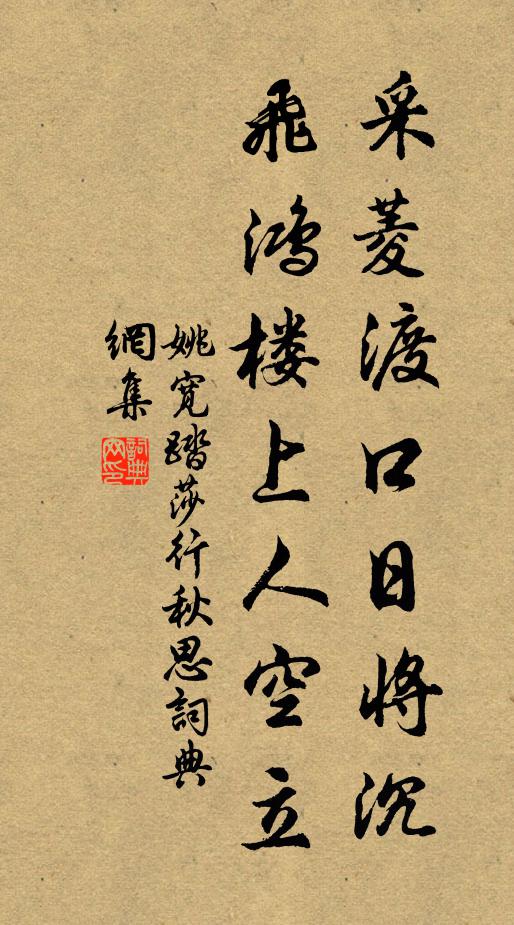 采菱渡口日将沉
飛鴻楼上人空立
姚寬踏莎行秋思詞典
網集
詞典
网印